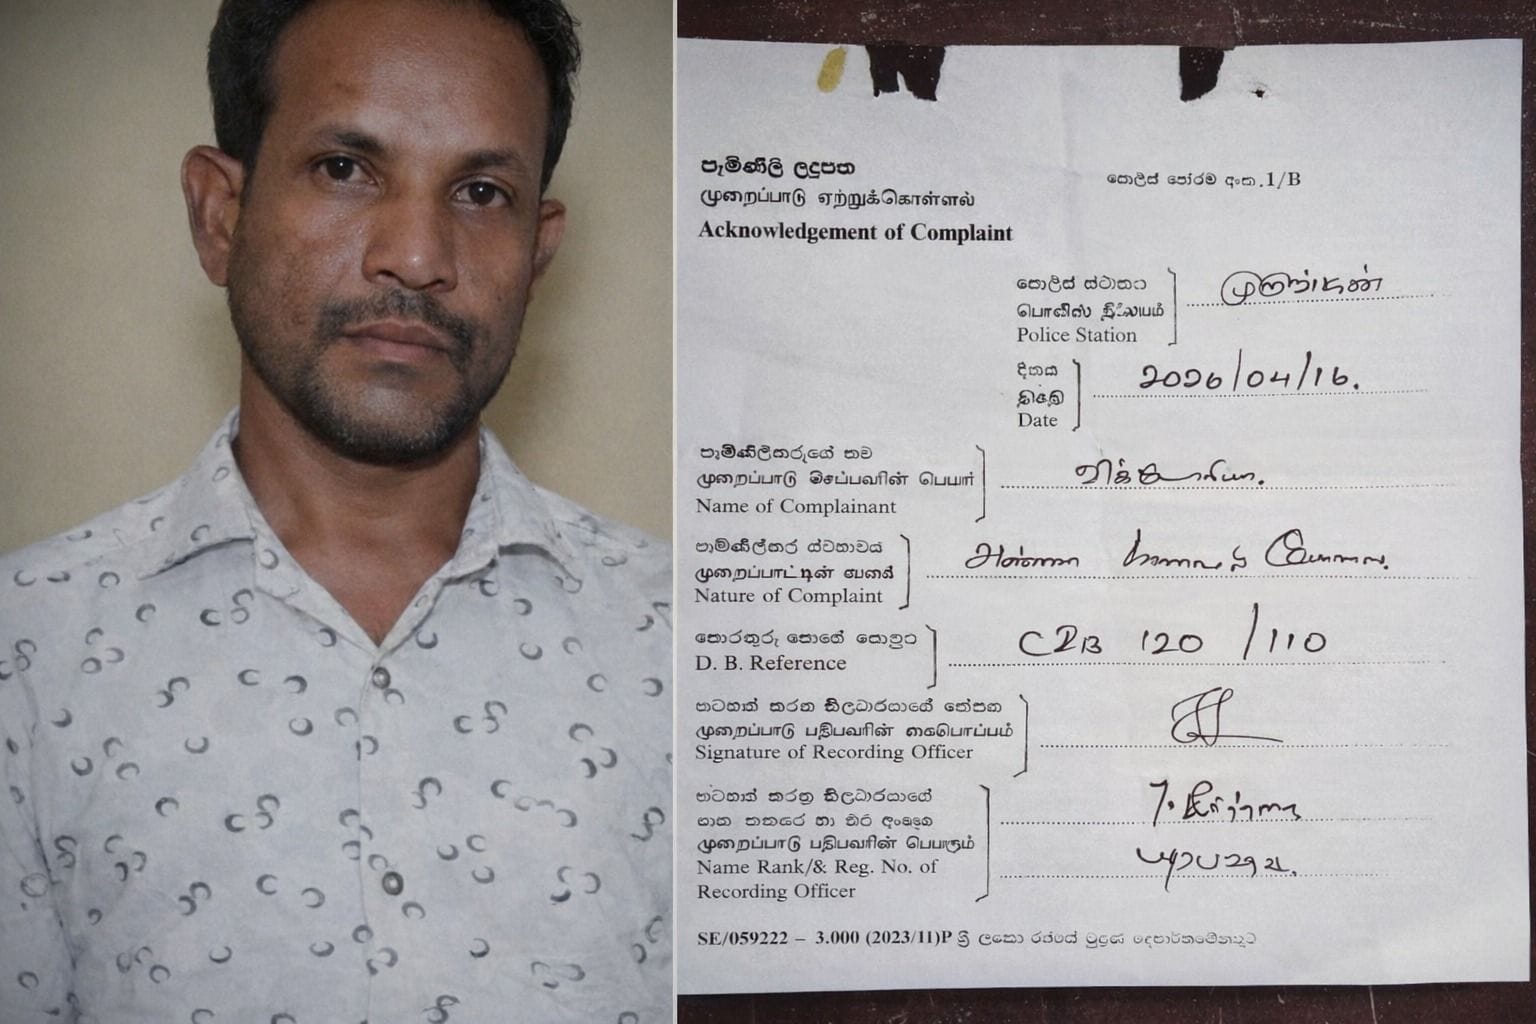 පැමිණිලි ලදුපත
முறைப்பாடு ஏற்றுக்கொள்ளல்
Acknowledgement of Complaint
පොලිස් පෝරම අංක.1/B
පොලිස් ස්ථානය
பொலிஸ் நிலையம்
Police Station
முருங்கன்
දිනය
திகதி
Date
2026/04/16.
පැමිණිලිකරුගේ නම
முறைப்பாடு செய்பவரின் பெயர்
Name of Complainant
முறைப்பாட்டின்
Nature of Complaint
அண்ணா
තොරතුරු පොතේ
D. B. Reference
CIB 120 /110
සටහන් කරන නිලධාරයාගේ
முறைப்பாடு பதிபவரின் கைபொப்பம்
Signature of Recording Officer
සටහන් කරන නිලධාරයාගේ
හා අංකය
முறைப்பாடு பதிபவரின்
Name Rank/& Reg. No. of
Recording Officer
SE/059222 – 3.000 (2023/11)P ශ්‍රී ලංකා රජයේ මුද්‍රණ දෙපාර්තමේන්තුව